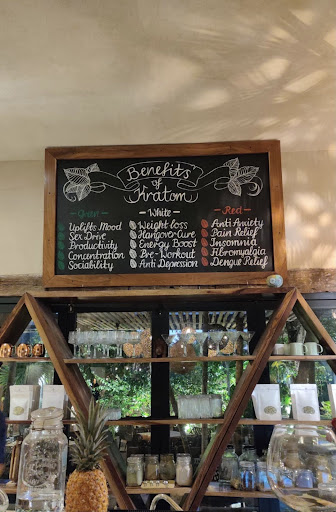 Benefits
of
Kratom
Green
White
Red
Uplifts Mood
Sex Drive
Productivity
Concentration
Sociability
Weight loss
Hangover Cure
Energy Boost
Pre-Workout
Anti Depression
Anti Anxiety
Pain Relief
Insomnia
Fibromyalgia
Dengue Relief